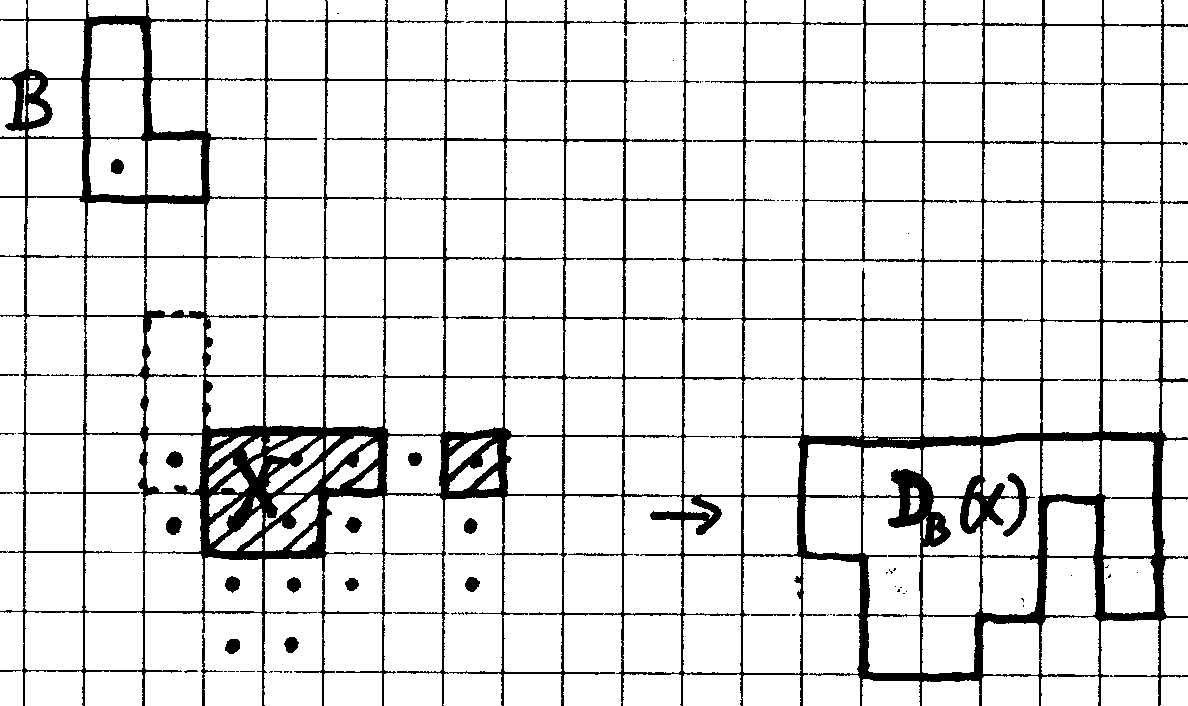 B
X
→ D_B(X)